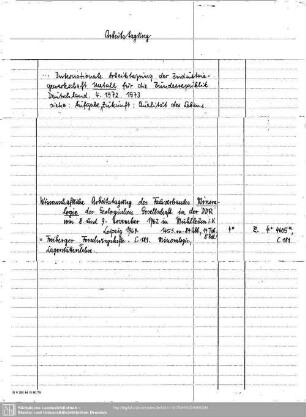 Arbeitstagung
... Internationale Arbeitstagung der Industrie-
gewerkschaft Metall für die Bundesrepublik
Deutschland. 4. 1972. 1973
siehe: Aufgabe Zukunft: Qualität des Lebens
Wissenschaftliche Arbeitstagung des Fachverbandes Minera-
logie der Geologischen Gesellschaft in der DDR
vom 8. und 9. November 1962 in
Leipzig 1964. 4° Z. 4° 4605
= Freiberger Forschungshefte. C 181. Mineralogie, C 181
Lagerstättenlehre.
Sächsische Landesbibliothek -
Staats- und Universitätsbibliothek Dresden